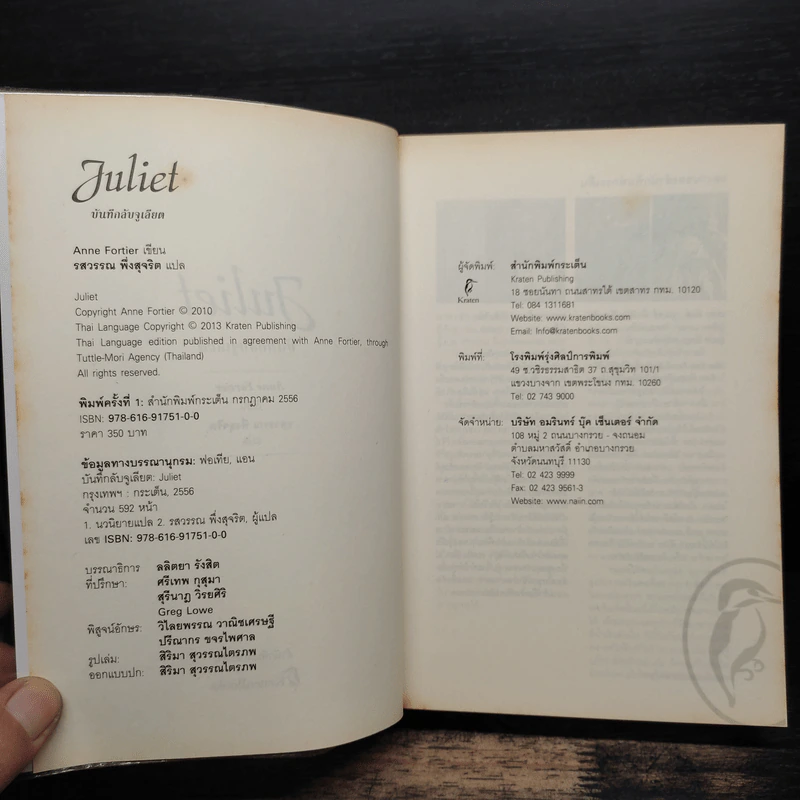 Juliet
บันทึกลับจูเลียต
Anne Fortier เขียน
รสวรรณ พึ่งสุจริต แปล
Juliet
Copyright Anne Fortier © 2010
Thai Language Copyright © 2013 Kraten Publishing
Thai Language edition published in agreement with Anne Fortier, through
Tuttle-Mori Agency (Thailand)
All rights reserved.
พิมพ์ครั้งที่ 1: สำนักพิมพ์กระเต็น กรกฎาคม 2556
ISBN: 978-616-91751-0-0
ราคา 350 บาท
ข้อมูลทางบรรณานุกรม: ฟอเทีย, แอน
บันทึกลับจูเลียต: Juliet
กรุงเทพฯ : กระเต็น, 2556
จำนวน 592 หน้า
1. นวนิยายแปล 2. รสวรรณ พึ่งสุจริต, ผู้แปล
เลข ISBN: 978-616-91751-0-0
บรรณาธิการ ลลิตยา รังสิต
ที่ปรึกษา: ศรีเทพ กุสุมา
สุรีนาฏ วิรยศิริ
Greg Lowe
พิสูจน์อักษร: วิไลยพรรณ วาณิชเศรษฐี
ปรีณากร ขจรไพศาล
รูปเล่ม: สิริมา สุวรรณไตรภพ
ออกแบบปก: สิริมา สุวรรณไตรภพ
ผู้จัดพิมพ์: สำนักพิมพ์กระเต็น
Kraten
Kraten Publishing
18 ซอยนันทา ถนนสาทรใต้ เขตสาทร กทม. 10120
Tel. 084 1311681
Website: www.kratenbooks.com
Email: Info@kratenbooks.com
พิมพ์ที่: โรงพิมพ์รุ่งศิลป์การพิมพ์
49 ซ.วชิรธรรมสาธิต 37 ถ.สุขุมวิท 101/1
แขวงบางจาก เขตพระโขนง กทม. 10260
Tel: 02 743 9000
จัดจำหน่าย: บริษัท อมรินทร์ บุ๊ค เซ็นเตอร์ จำกัด
108 หมู่ 2 ถนนบางกรวย - จงถนอม
ตำบลมหาสวัสดิ์ อำเภอบางกรวย
จังหวัดนนทบุรี 11130
Tel: 02 423 9999
Fax: 02 423 9561-3
Website: www.naiin.com